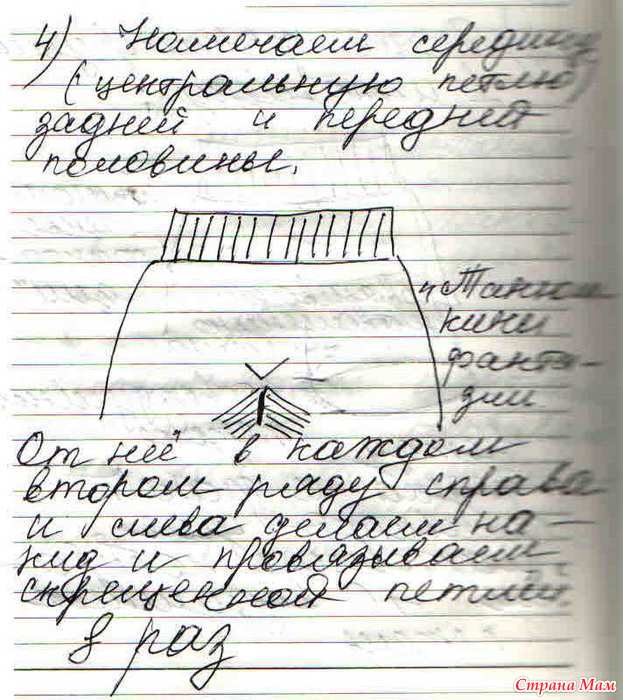 4) Намечаем середину
(центральную петлю)
задней и передней
половины.
"Танюш
кины
фанта-
зии
От неё в каждом
втором ряду справа
и слева делаем на-
кид и провязываем
скрещенной петлёй
8 раз
Страна Мам